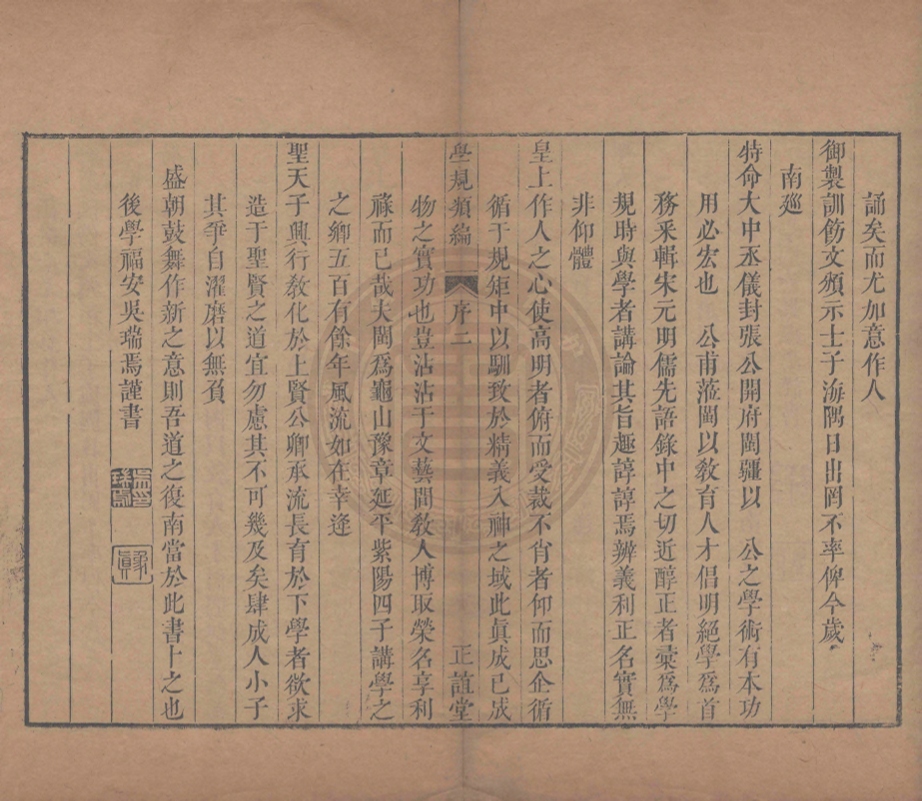 誦矣而尤加意作人
御製訓飭文頒示士子海隅日出罔不率俾今歲
南廵
特命大中丞儀封張公開府閩疆以　公之學術有本功
用必宏也　公甫蒞閩以敎育人才倡明絕學爲首
務采輯宋元明儒先語錄中之切近醇正者彙爲學
規時與學者講論其旨趣諄諄焉辨義利正名實無
非仰體
皇上作人之心使高明者俯而受裁不肖者仰而思企循
循于規矩中以馴致於精義入神之域此眞成已成
學規類編　序二　正誼堂
物之實功也豈沾沾于文藝間敎人博取榮名享利
祿而已哉夫閩爲龜山豫章延平紫陽四子講學之
之鄉五百有餘年風流如在幸逢
聖天子興行敎化於上賢公卿承流長育於下學者欲求
造于聖賢之道宜勿慮其不可幾及矣肆成人小子
其爭自濯磨以無負
盛朝鼓舞作新之意則吾道之復南當於此書卜之也
後學福安吳瑞焉謹書